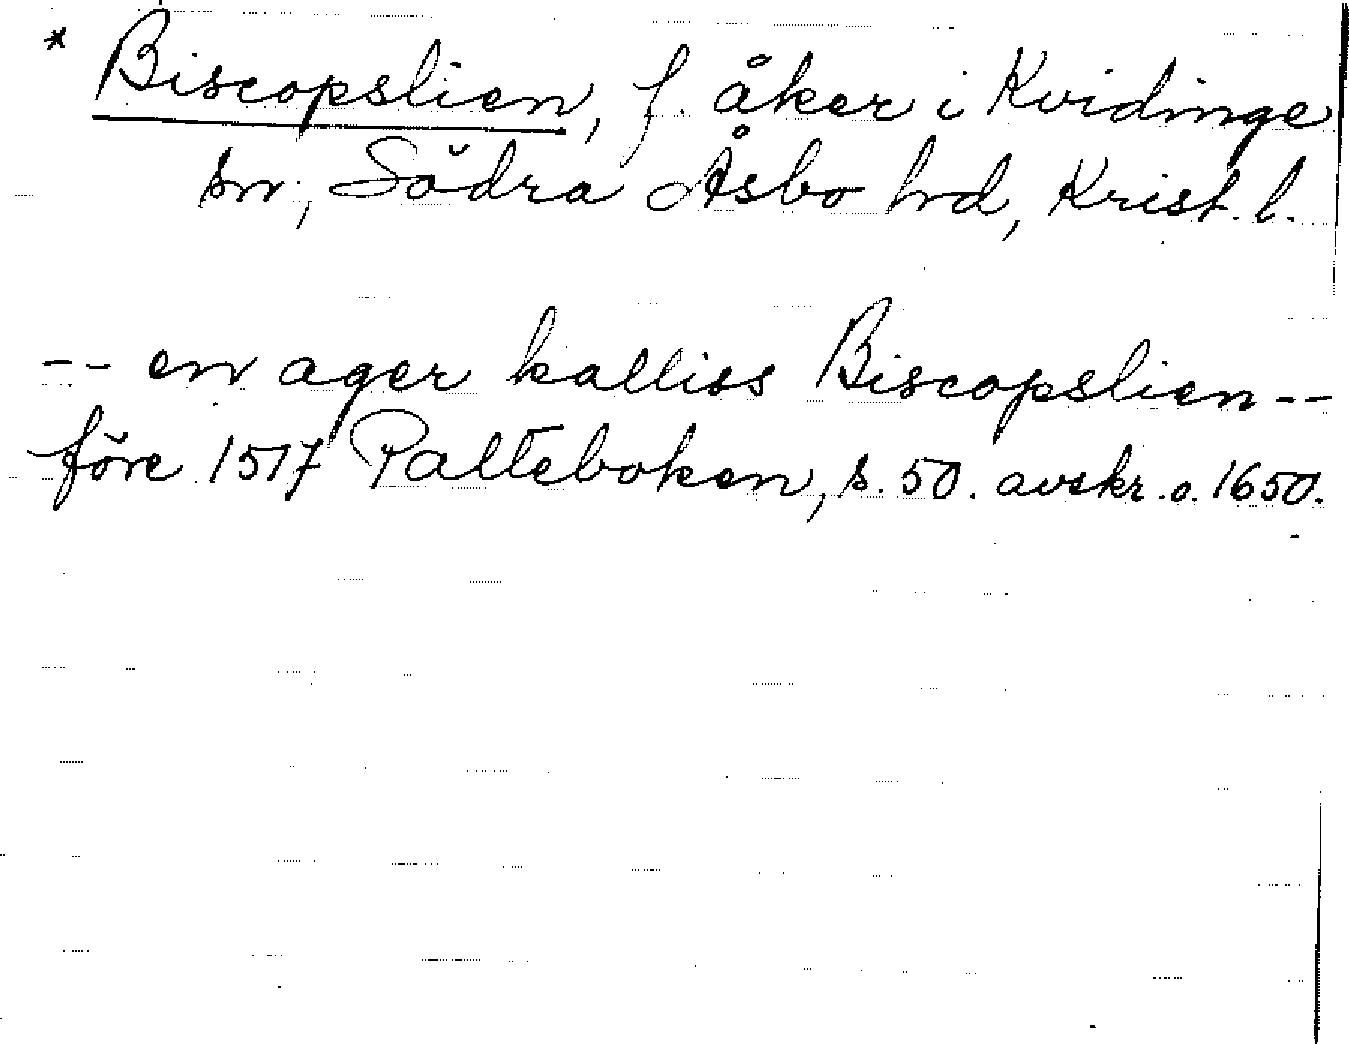 * Biscopslien, f. åker i Kvidinge
sn, Södra Åsbo hd, Krist. l.
-- en ager kalliss Biscopslien --
före 1517 Palteboken, s. 50. avskr. o. 1650.